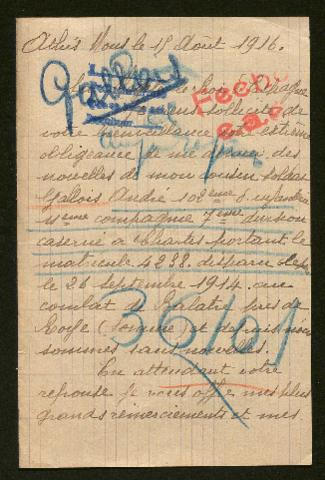 Athis Mons le 15 Août 1916.
Espagne
sollicite de
votre bienveillance
obligeance de me donner des
nouvelles de mon cousin soldat
Gallois André 102ème d'infanterie
11ème compagnie 7ème division
caserné à Chartes portant le
matricule 4238 disparu
le 26 septembre 1914 au
combat de près de
Roye (Somme) et depuis nous
sommes sans nouvelles.
En attendant votre
reponse je vous offre mes plus
grands remerciements et mes
Fech.
36101